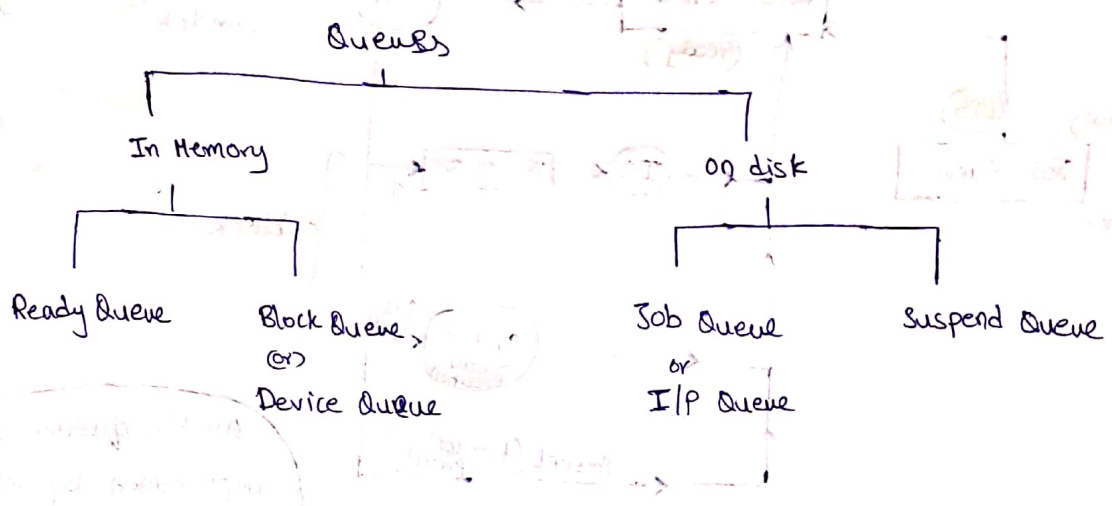 Queues
In Memory
on disk
Ready Queue
Block Queue,
(or)
Device Queue
Job Queue
or
I/P Queue
Suspend Queue